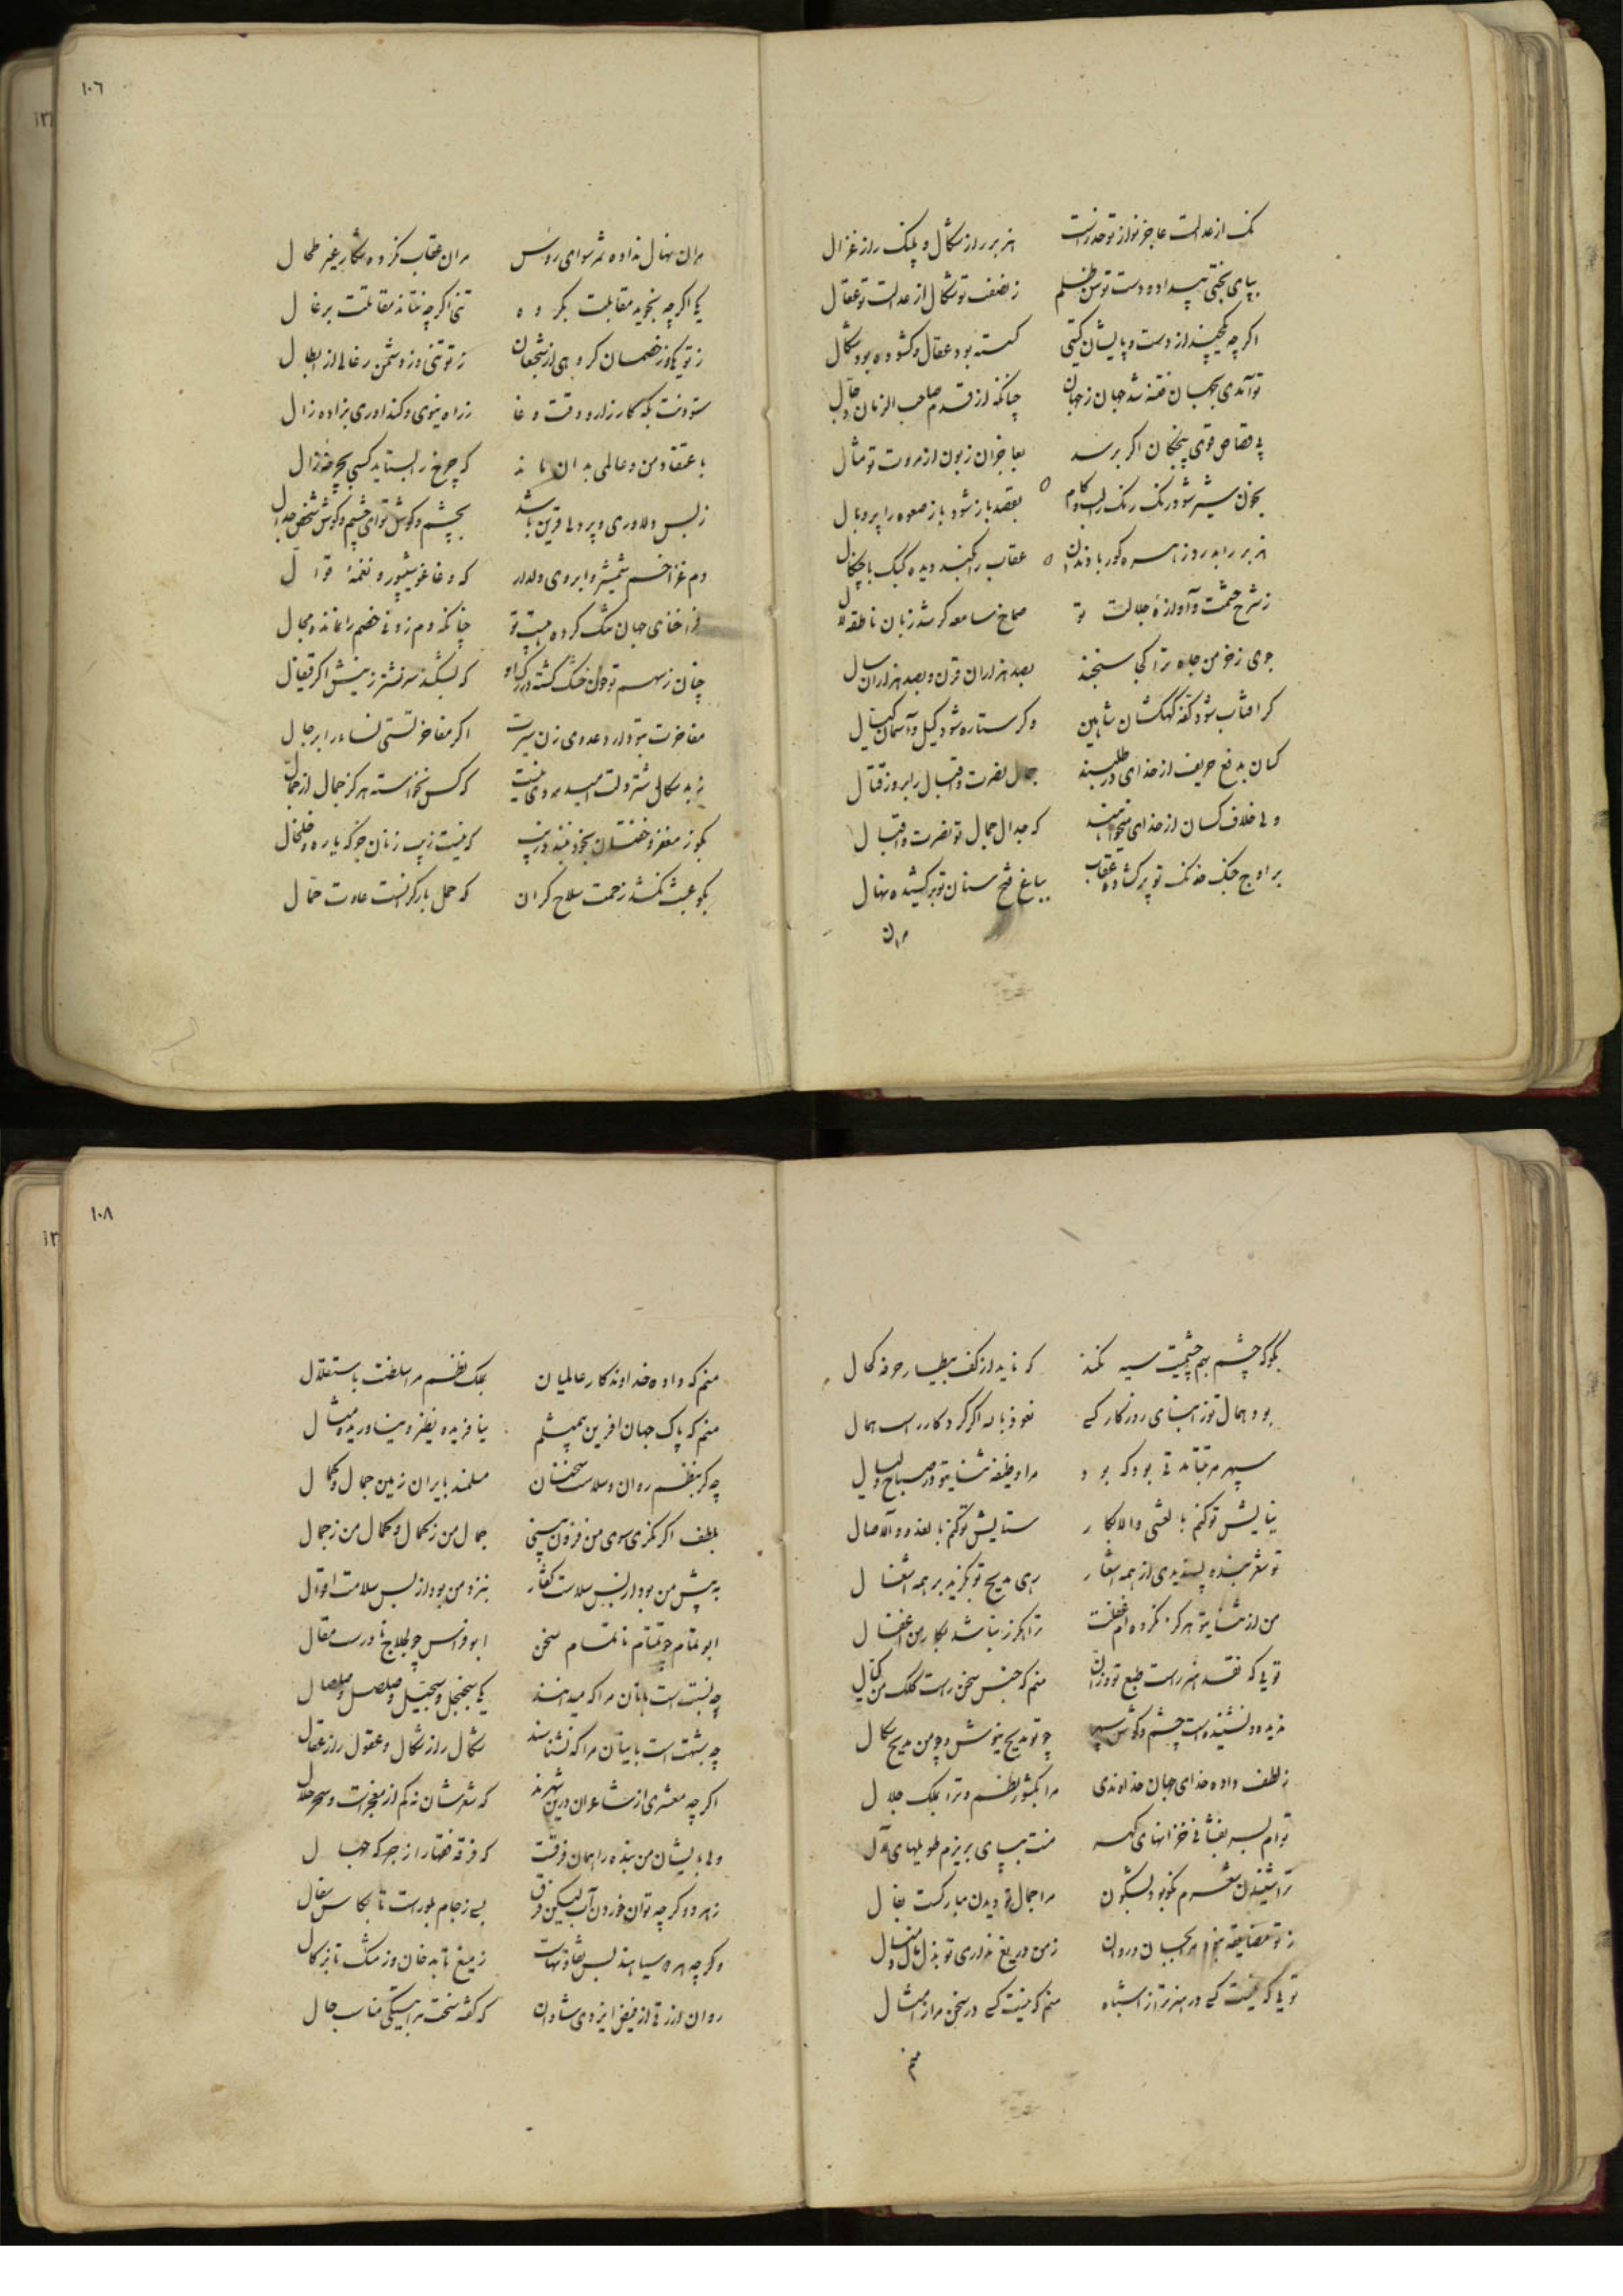 ١٠٦
کف از عدالت عاجز نواز تو حذر است هزبر راز شکال و پلنک راز غزال
بپای بختی بیداد و دست توسن ظلم ز نصفت تو شکال از عدالت تو عقال
اکرچه پیش از دست و پایشان کیتی کسسته بود عقال و کشوده بود شکال
تو آمدی بجهان فتنه شد جهان ز جهان چنانکه از قدم صاحب الزمان دجال
پی قصاص قوی پنجکان اکر برسد بعاجزان زبون از مروت تو مثال
بخون شیر شود رنک رنک را لب و کام بقصد باز شود باز صعوه را پر و بال
هزبر را بدرد زهره کور با دندان عقاب را بکند دیده کبک با چنکال
ز شرح حشمت و آوازهٔ جلالت تو صماخ سامعه کر شد زبان ناطقه لال
جوی ز خرمن جاه ترا کجا سنجند بصد هزاران قرن و بصد هزاران سال
کر افتاب شود کفه کهکشان شاهین و کر ستاره شود کیل و آسمان کیال
کسان بدفع حریف از خدای در طلبند جمال نصرت و اقبال را بروز قتال
ولی خلاف کسان از خدای میخواهند که جدال جمال تو نصرت و اقبال
بر اوج جنک خدنک تو پر کشاده عقاب بباغ فتح سنان تو برکشیده نهال
مر ان
مر ان نهال نداده ثمر سوای رؤس مر ان عقاب نکرده شکار غیر طحال
یکی اکرچه نجوید مقابلت بکروه تنی اکرچه نتاند مقاتلت برعال
ز تو یکی و ز خصمان کروهی از شجعان ز تو تنی و ز دشمن رعالی از ابطال
ستودنت بکه کارزار و وقت وغا ز راه نیوی و کنداوری بزاده زال
باعتقاد من و عالمی بدان ماند که چرخ را بستاید کسی بچرخه زال
ز بس دلاوری و پردلی قرین باشد بچشم و کوش تو ای چشم و کوش شخص جدال
دم غزا خم شمشیر و ابروی دلدار که وغا غو شیپور و نغمهٔ قوال
فراخنای جهان تنک کرده هیبت تو چنانکه دم زدنی خصم را نمانده مجال
چنان ز سهم تو خون خشک کشته در رک او که بشکند سر نشتر ز نیشش اکر قیفال
مفاخرت بتو دارد عدوی زن سیرت اکر مفاخرتستی نساء را برجال
ز بد سکالی شتر دلت امید بهی نیست که کس نخواسته هرکز جمال از جمال
بکو ز مغفر و خفتان بخود نبندد زیب که نیست زیب زنان جز که یاره و خلخال
بکو عبث نکشد زحمت سلاح کران که حمل بار کرانست عادت حمال
١٠٨
بکو که چشم بهم چشمیت سیه نکند که ناید از کف بیطار حرفه کحال
بود همال تو ز ابنای روزکار کسی نعوذ بالله اکر کردکار راست همال
سپهر مرتبتا تا بود که بود مرا وظیفه ثنایت در صباح و لیال
نیایش تو کنم بالعشی والابکار ستایش تو کنم بالغدو والآصال
تو شعر بنده پسندیدی از همه اشعار رهی مدیح تو بکزید بر همه اشغال
من از ثنایت هرکز نکرده ام غفلت ترا هکرز نباشد بکار من اغفال
توئی که نقد هنر راست طبع تو وزان منم که جنس سخن راست کلک من کیال
ندیده و نشنیده است چشم و کوش سپهر چو تو مدیح نیوش و چو من مدیح سکال
ز لطف داده خدای جهان خداوندی مرا بکشور نظم و ترا بملک جلال
ترام بسر بفشانی خزانهای کهر منت بپای بریزم طویلهای لآل
ترا شنیدن شعرم نکو بود بشکون مرا جمال تو دیدن مبارکست بفال
ز تو مضایقه نبود مرا بجسم و روان ز من دریغ نداری تو بذل مال و منال
توئی که نیست کسی در هنر ترا ز اشباه منم که نیست کسی در سخن مرا ز امثال
منم
منم که داده خداوندکار عالمیان بملک نظم مرا سلطنت باستقلال
منم که پاک جهان افرین بهمیشم نیافریده نظیر و نیاوریده مثال
چه کر بنظم روان و سلاست سخنان مسلمند بایران زمین جمال و کمال
بلطف اکر نکری سوی من فزون بینی جمال من ز کمال و کمال من ز جمال
به پیش من بود ار بس سلاست کفتار بنزد من بود از بس سلامت اقوال
ابو تمام چو تمتام ناتمام سخن ابو فراس چو لجلاج نادرست مقال
چه نسبت است بانان مرا که میدانند یکی سجنجل و سجیل و صلصل و صلصال
چه شبهت است باینان مرا که نشناسند شکال راز شکال و عقول راز عقال
اکرچه معشری از شاعران درین شهرند که شعرشان نه کم از معجزات و سحر حلال
ولی بایشان من بنده را همان فرقست که فرقه فضلا را ز جرکه جهال
ز هر دو کرچه توان خورد آب لیکن فرق بسی ز جام بلور است تا بکاس سفال
و کرچه هر دو سیاهند بس تفاوتهاست ز میغ تا بدخان و ز مشک تا بزکال
روان ازرقی از فیض ایزدی شادان که کفته سخت براهیختگی مناسب حال